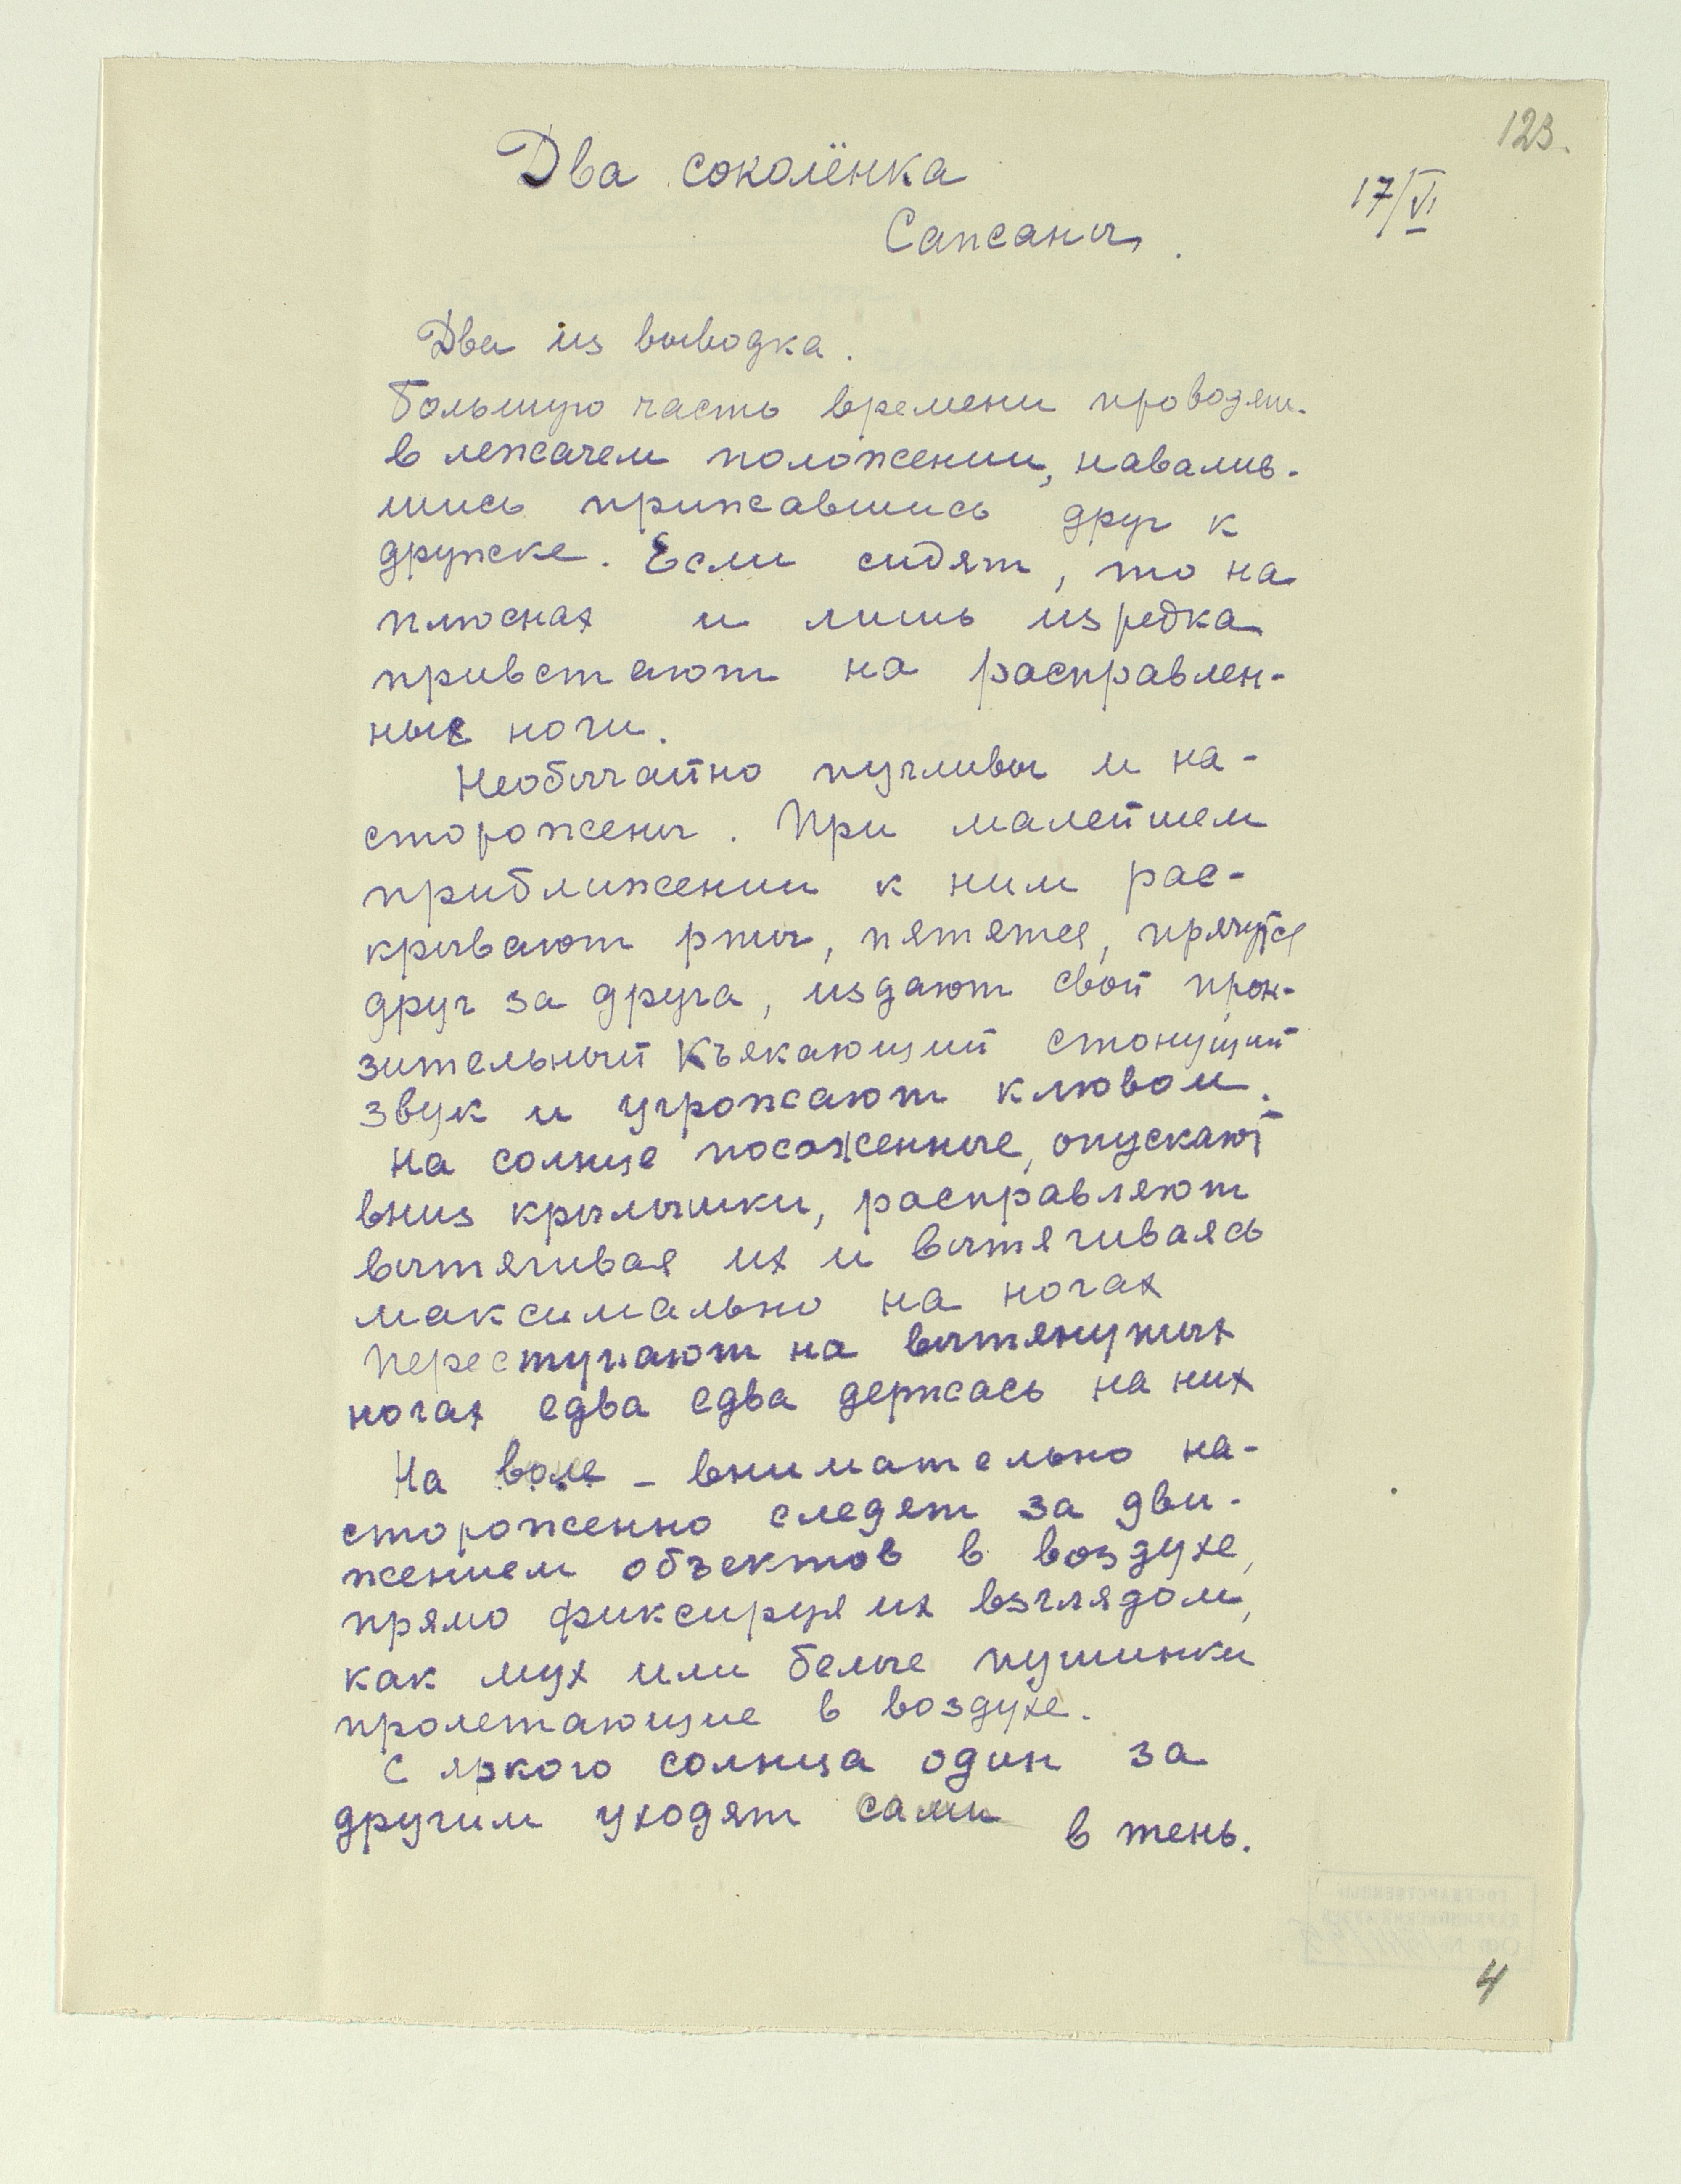 123.
Два соколёнка
17/VI
Сапсаны.
Два из выводка.
Большую часть времени проводят
в лежачем положении, навалив-
шись прижавшись друг к
дружке. Если сидят, то на
плюснах и лишь изредка
привстают на расправлен-
ные ноги.
Необычайно пугливы и на-
сторожены. При малейшем
приближении к ним рас-
крывают рты, пятятся, прячутся
друг за друга, издают свой прон-
зительный Къякающий стонущий
звук и угрожают клювом.
На солнце посаженные, опускают
вниз крылышки, расправляют
вытягивая их и вытягиваясь
максимально на ногах
Переступают на вытянутых
ногах едва едва держась на них
На воле – внимательно на-
стороженно следят за дви-
жением объектов в воздухе,
прямо фиксируя их взглядом,
как мух или белые пушинки
пролетающие в воздухе.
С яркого солнца один за
другим уходят сами в тень.
4